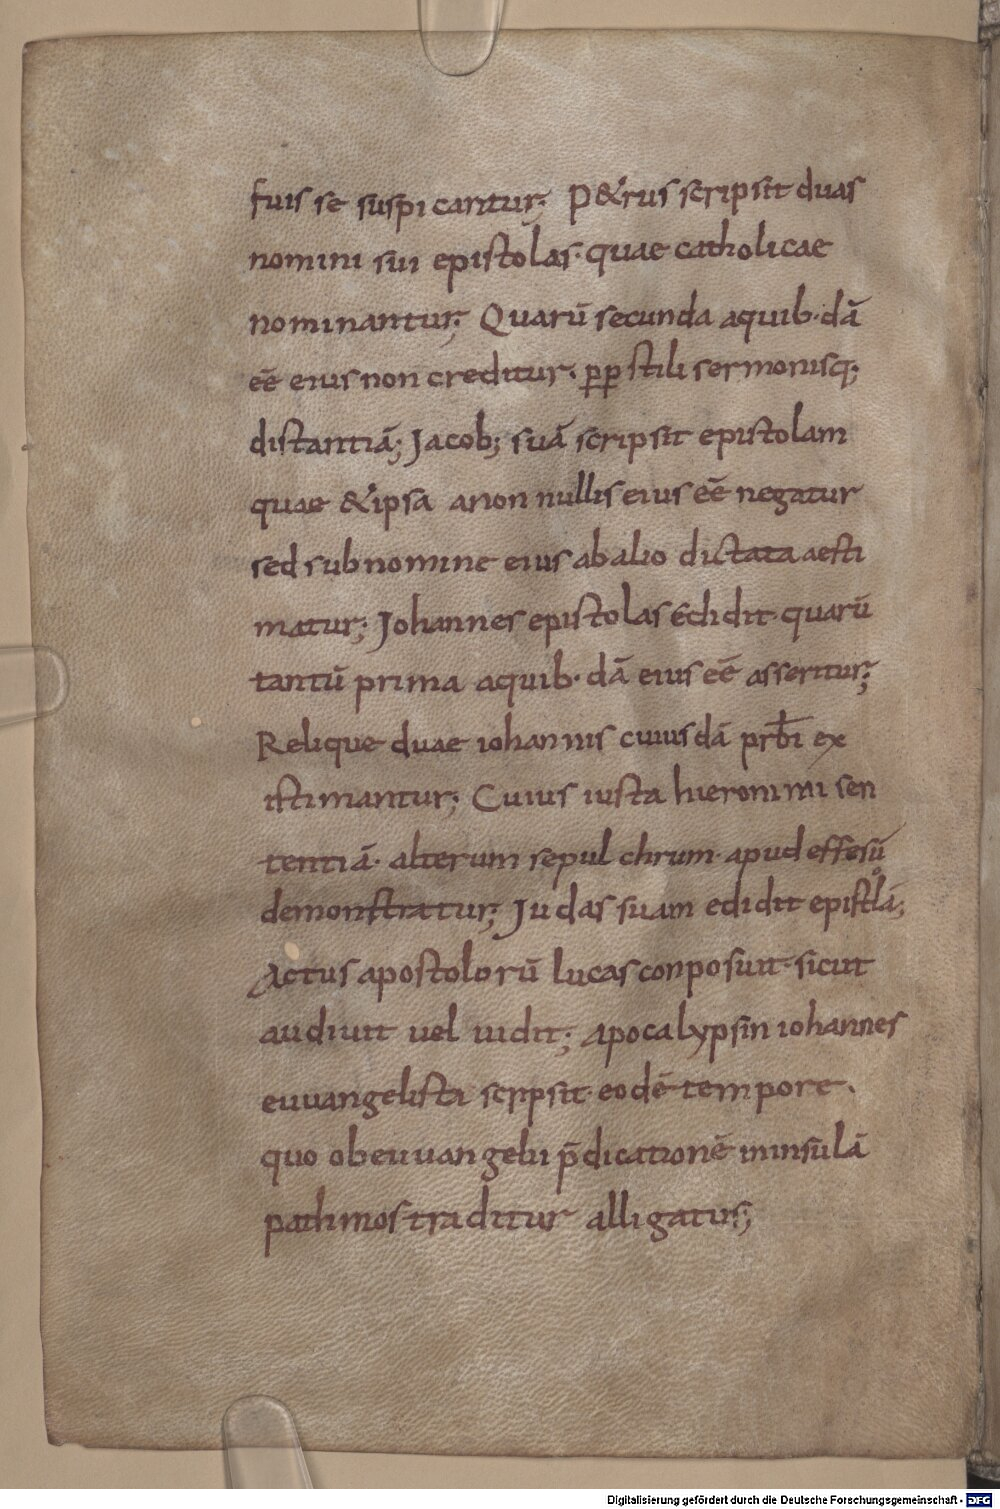 fuis se suspicantur; P&rus scripsit duas
nomini sui epistolas· quae catholicae
nominantur; Quarū secunda aquib·dā
eē eius non creditur· ꝓp stili sermonisq;
distantiā; Jacob; suā scripsit epistolam
quae & ipsa anon nullis eius eē negatur
sed sub nomine eius ab alio dictata aesti
matur; Johannes epistolas edidit· quarū
tantū prima aquib·dā eius eē asseritur;
Relique duae iohannis cuiusdā prb̄i ex
istimantur; Cuius iusta hieronimi sen
tentiā· alterum sepulchrum· apud effesū
demonstratur; Judas suam edidit epistolā;
Actus apostolorū lucas conposuit· sicut
audiuit uel uidit; Apocalypsin iohannes
euuangelista scripsit· eodē tempore·
quo ob euuangelii p̄dicationē ininsulā
pathmos traditur alligatus;
Digitalisierung gefördert durch die Deutsche Forschungsgemeinschaft - DFG